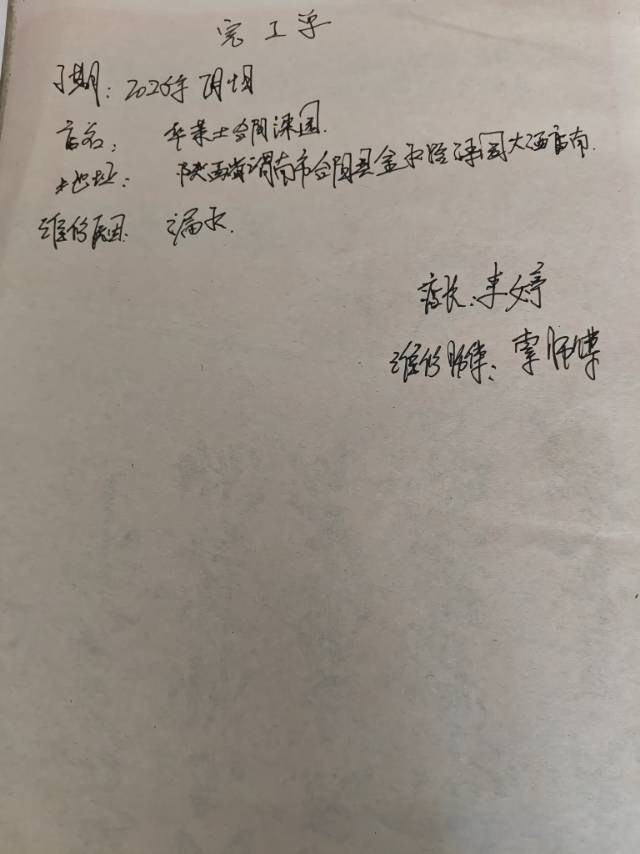 完工单
日期：2026年 月 日
店名： 华莱士合阳洽园
地址： 陕西省渭南市合阳县金水路 园大酒店南.
维修原因 漏水.
店长：李婷
维修师傅：雷师傅